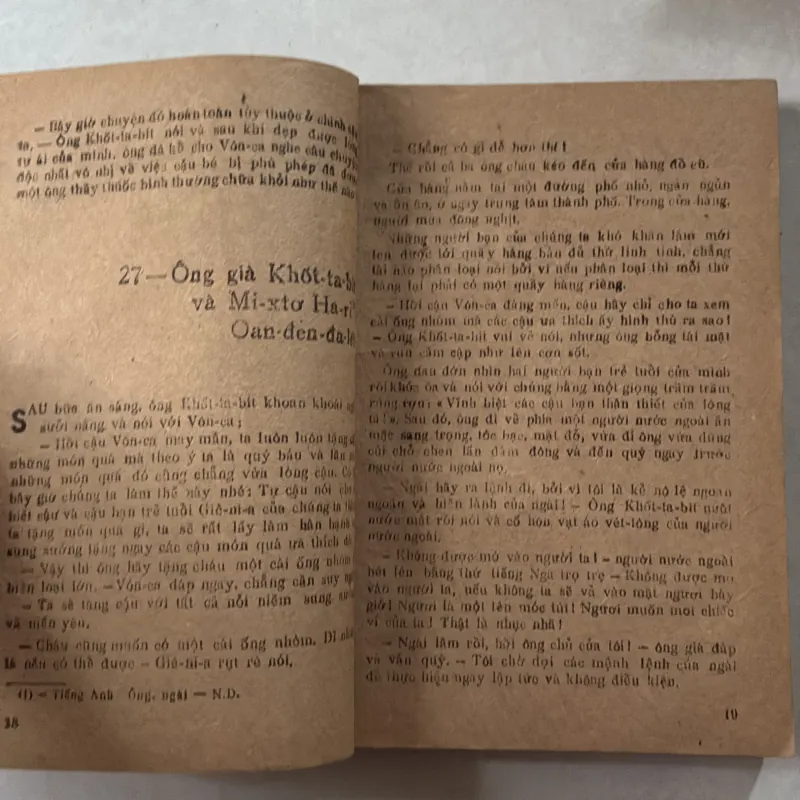 — Bây giờ chuyện đó hoàn toàn tùy thuộc ở chính
ta, — Ông Khốt-ta-bít nói và sau khi dẹp được
tự ái của mình, ông đã kể cho Vôn-ca nghe câu
độc nhất vô nhị về việc cậu bé bị phù phép đã
một ông thầy thuốc bình thường chữa khỏi như thế nào
27 — Ông già Khốt-ta-bí
và Mi-xtơ Ha-r
Oan-đen-đa-l
SAU bữa ăn sáng, ông Khốt-ta-bít khoan khoái
sưởi nắng và nói với Vôn-ca;
— Hỡi cậu Vôn-ca may mắn, ta luôn luôn tặng
những món quà mà theo ý ta là quý báu và
những món quà đó cũng chẳng vừa lòng cậu.
bây giờ chúng ta làm thế này nhé: Tự cậu nói
biết cậu và cậu bạn trẻ tuổi Giê-ni-a của chúng ta
ta tặng món quà gì, ta sẽ rất lấy làm hân hạnh
sung sướng tặng ngay các cậu món quà ưa thích
— Vậy thì ông hãy tặng cháu một cái ống nhòm
hiện loại lớn, — Vôn-ca đáp ngay, chẳng cần suy
— Ta sẽ tặng cậu với tất cả nỗi niềm sung
và mến yêu.
— Cháu cũng muốn có một cái ống nhòm. Dĩ
là nếu có thể được — Giê-ni-a rụt rè nói.
(1) — Tiếng Anh Ông, ngài — N.D.
18
— Chẳng có gì dễ hơn thế!
Thế rồi cả ba ông cháu kéo đến cửa hàng đồ cũ.
Cửa hàng nằm tại một đường phố nhỏ, ngắn ngủn
và ồn ồn, ở ngay trung tâm thành phố. Trong cửa hàng,
người mua đông nghịt.
Những người bạn của chúng ta khó khăn lắm mới
len được tới quầy hàng bán đủ thứ linh tinh, chẳng
tài nào phân loại nổi bởi vì nếu phân loại thì mỗi thứ
hàng lại phải có một quầy hàng riêng.
— Hỡi cậu Vôn-ca đáng mến, cậu hãy chỉ cho ta xem
cái ống nhòm mà các cậu ưa thích ấy hình thù ra sao!
— Ông Khốt-ta-bít vui vẻ nói, nhưng ông bỗng tái mặt
và run cầm cập như lên cơn sốt.
Ông đau đớn nhìn hai người bạn trẻ tuổi của mình
rồi khóc òa và nói với chúng bằng một giọng trầm trầm
rùng rợn: «Vĩnh biệt các cậu bạn thân thiết của lòng
ta!». Sau đó, ông đi về phía một người nước ngoài ăn
mặc sang trọng, tóc bạc, mặt đỏ, vừa đi ông vừa dùng
cùi chỏ chen lấn đám đông và đến quỳ ngay trước
người nước ngoài nọ.
— Ngài hãy ra lệnh đi, bởi vì tôi là kẻ nô lệ ngoan
ngoãn và hiền lành của ngài! — Ông Khốt-ta-bít nuốt
nước mắt rồi nói và cố hôn vạt áo vét-tông của người
nước ngoài.
— Không được mó vào người ta! — người nước ngoài
hét lên bằng thứ tiếng Nga trọ trẹ — Không được mó
vào người ta, nếu không ta sẽ vả vào mặt ngươi bây
giờ! Ngươi là một tên móc túi! Ngươi muốn moi chiếc
ví của ta! Thật là nhục nhã!
— Ngài lầm rồi, hỡi ông chủ của tôi! — ông già đáp
và vẫn quỳ. — Tôi chờ đợi các mệnh lệnh của ngài
để thực hiện ngay lập tức và không điều kiện.
19